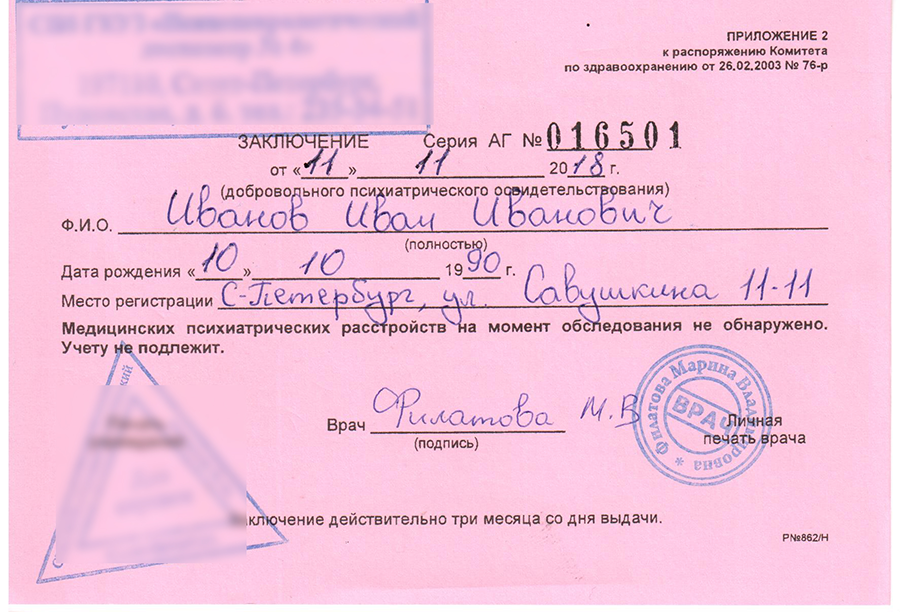 ПРИЛОЖЕНИЕ 2
к распоряжению Комитета
по здравоохранению от 26.02.2003 № 76-р
ЗАКЛЮЧЕНИЕ Серия АГ № 016501
от «11» 11 2018 г.
(добровольного психиатрического освидетельствования)
Ф.И.О. Иванов Иван Иванович
(полностью)
Дата рождения «10» 10 1990 г.
Место регистрации С-Петербург, ул. Савушкина 11-11
Медицинских психиатрических расстройств на момент обследования не обнаружено.
Учету не подлежит.
Врач Филатова М.В
(подпись)
Филатова Марина Владимировна *
ВРАЧ
Личная
печать врача
заключение действительно три месяца со дня выдачи.
Р№862/Н